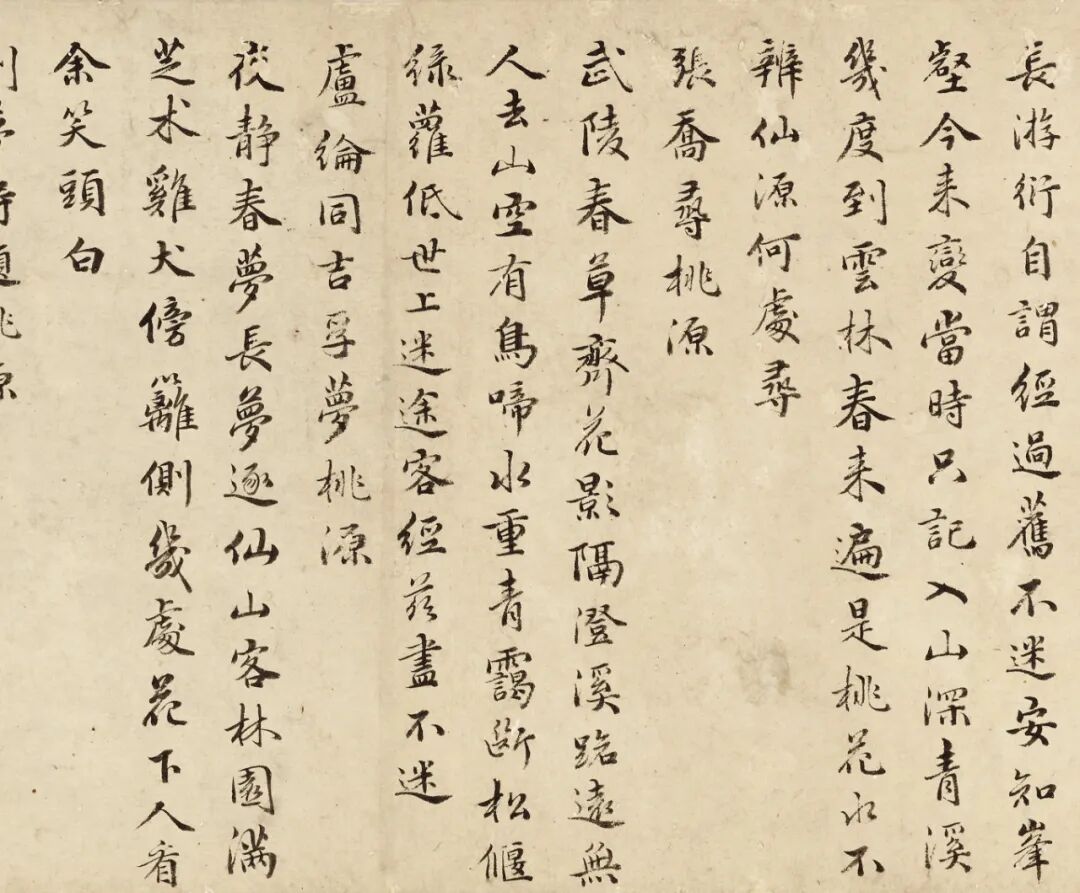 長游衍自謂經過舊不迷安知峯
壑今来變當時只記入山深青溪
幾度到雲林春来遍是桃花水不
辨仙源何處尋
張喬尋桃源
武陵春草齊花影隔澄溪路遠無
人去山空有鳥啼水重青靄斷松偃
綠蘿低世上迷途客經茲盡不迷
盧綸同吉孚夢桃源
夜静春夢長夢逐仙山客林園滿
芝术雞犬傍籬側幾處花下人看
余笑頭白